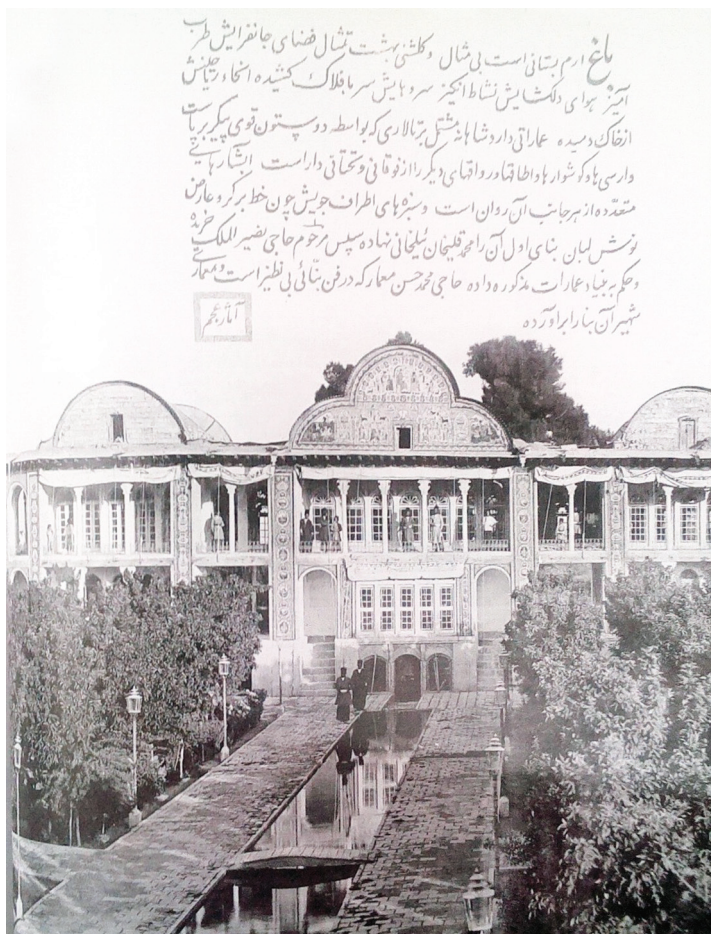 باغ ارم بستانی است بی مثال و گلشنی بهشت تمثال فضای جانفزایش طرب
آمیز هوای دلگشایش نشاط انگیز سروهایش سر بافلاک کشیده انحاء ریاحینش
از خاک دمیده عماراتی دارد شاهانه مشتمل بر تالاری که بواسطه دو ستون قوی پیکر برپاست
وارسی ها و گوشوارها و اطاقها و رواقهای دیگر را از فوقانی و تحتانی داراست آبشارهایی
متعدده از هر جانب آن روان است و سبزه های اطراف جویش چون خط بر گرد عارض
نوش لبان بنای اول آن را محمد قلیخان ئیلخانی نهاده سپس مرحوم حاجی نصیر الملک خریده
و حکم به بنیاد عمارات مذکوره داده حاجی محمد حسن معمار که در فن بنائی بی نظیر است و معماری
شهیر آن بنا را برآورده
آثار عجم